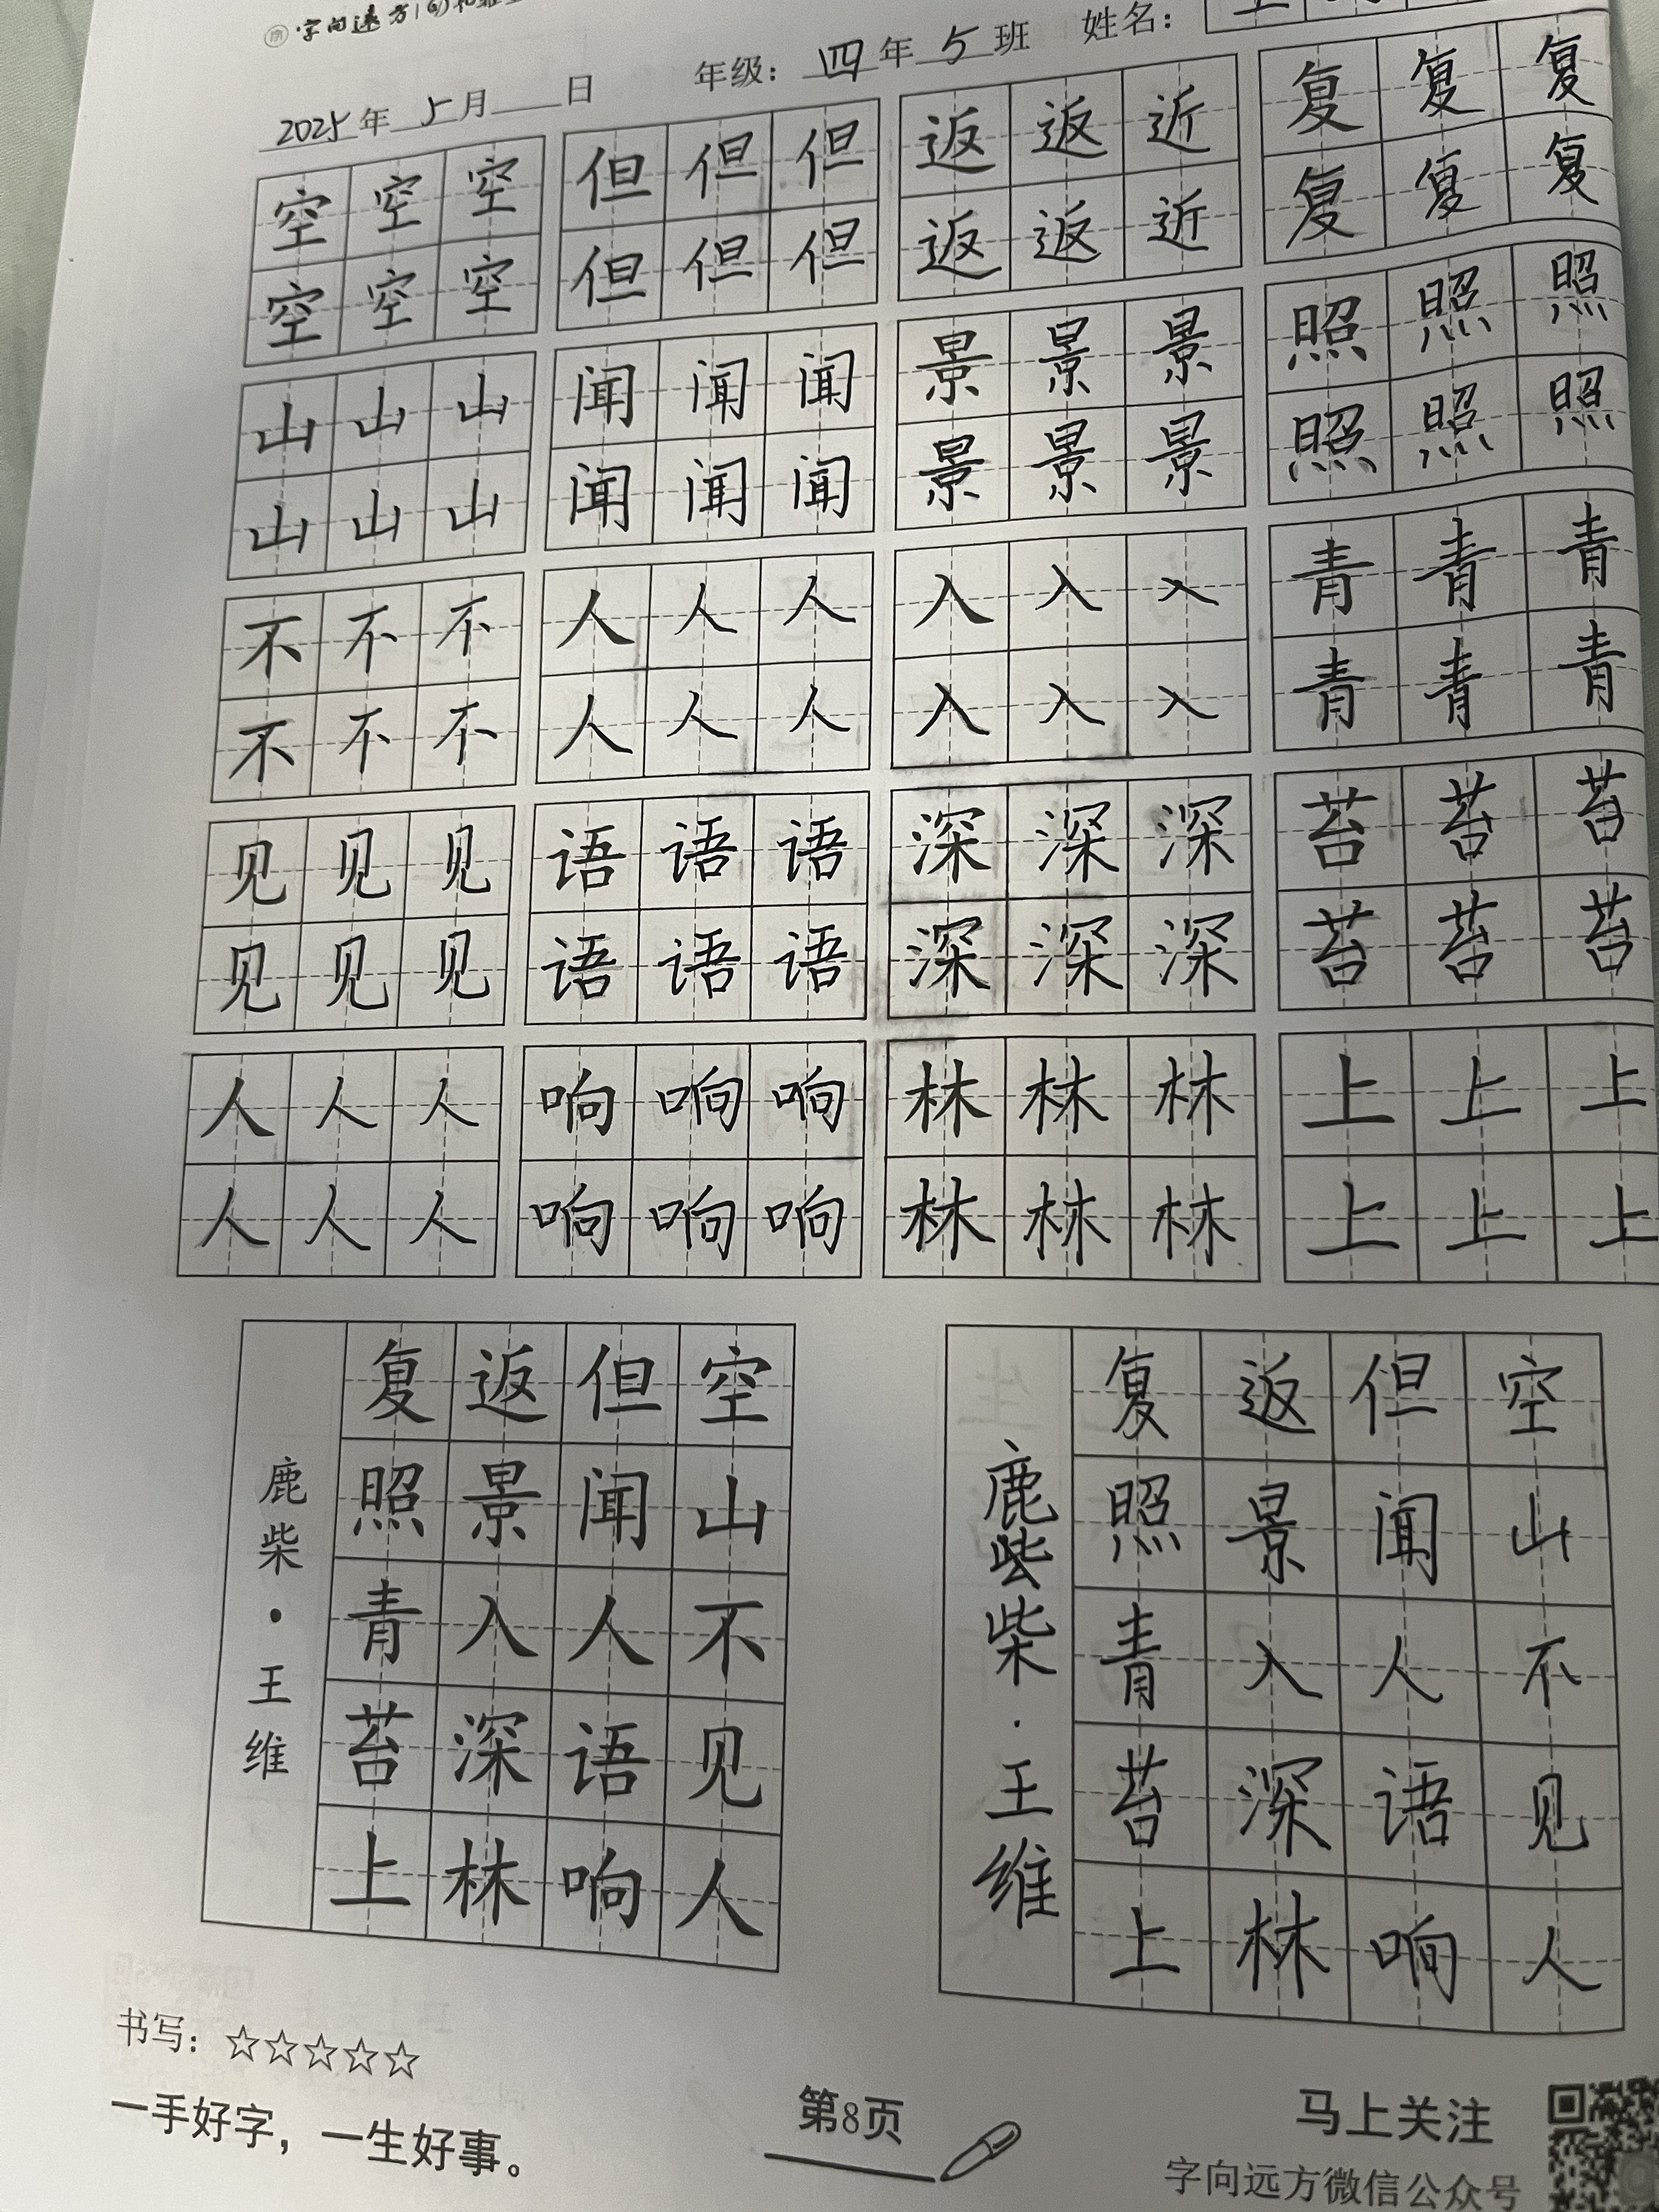 字向远方
2025年5月 日 年级：四年5班 姓名：
空空空 但但但 返返近 复复复
空空空 但但但 返返近 复复复
山山山 闻闻闻 景景景 照照照
山山山 闻闻闻 景景景 照照照
不不不 人人人 入入入 青青青
不不不 人人人 入入入 青青青
见见见 语语语 深深深 苔苔苔
见见见 语语语 深深深 苔苔苔
人人人 响响响 林林林 上上上
人人人 响响响 林林林 上上上
空山不见人
但闻人语响
返景入深林
复照青苔上
鹿柴·王维
空山不见人
但闻人语响
返景入深林
复照青苔上
鹿柴·王维
书写：☆☆☆☆☆
一手好字，一生好事。
第8页
马上关注
字向远方微信公众号